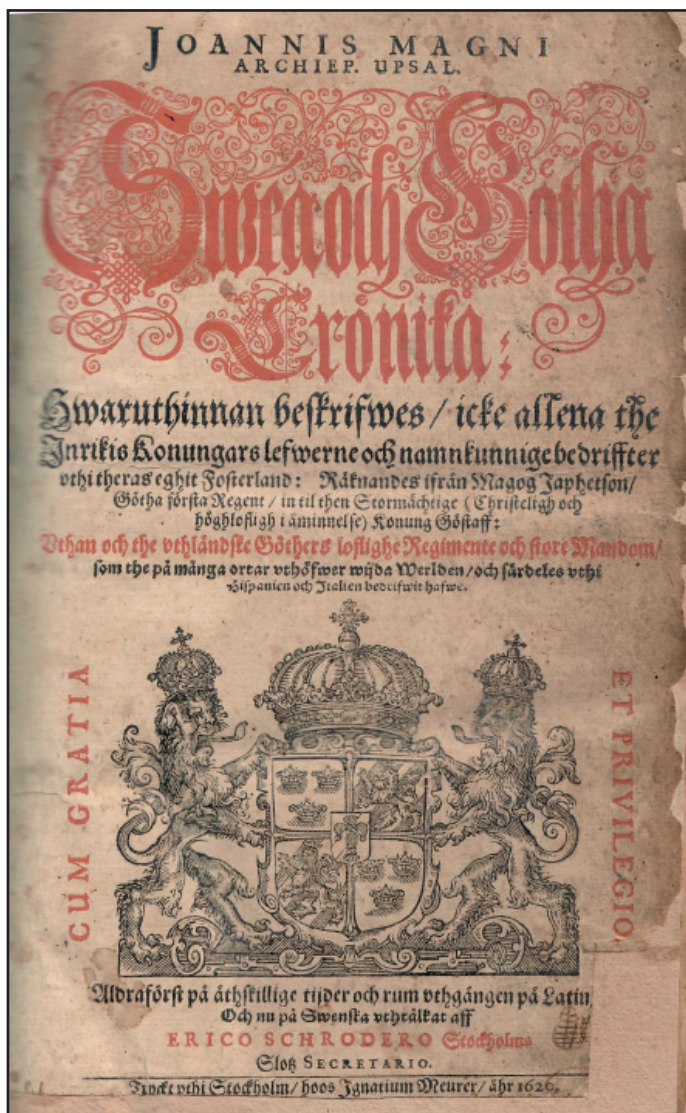 JOANNIS MAGNI
ARCHIEP. UPSAL.
Swea och Götha
Crönika:
Hwaruthinnan beskrifwes / icke allena the
Inrikis Konungars lefwerne och namnkunnige bedriffter
vthi theras eghit Fosterland: Räknandes ifrån Magog Japhetson /
Götha första Regent / in til then Stormächtige (Christeligh och
höghlofligh i åminnelse) Konung Göstaff:
Vthan och the vthländske Göthers loflighe Regimente och store Mandom /
som the på många ortar vthöfwer wijda Werlden / och särdeles vthi
Hispanien och Italien bedrifwit hafwe.
CUM GRATIA
ET PRIVILEGIO.
Aldraförst på åthskillige tijder och rum vthgången på Latin,
Och nu på Swenska vthtålkat aff
ERICO SCHRODERO Stockholms
Sloß SECRETARIO.
Tryckt vthi Stockholm / hoos Ignatium Meurer / åhr 1626.